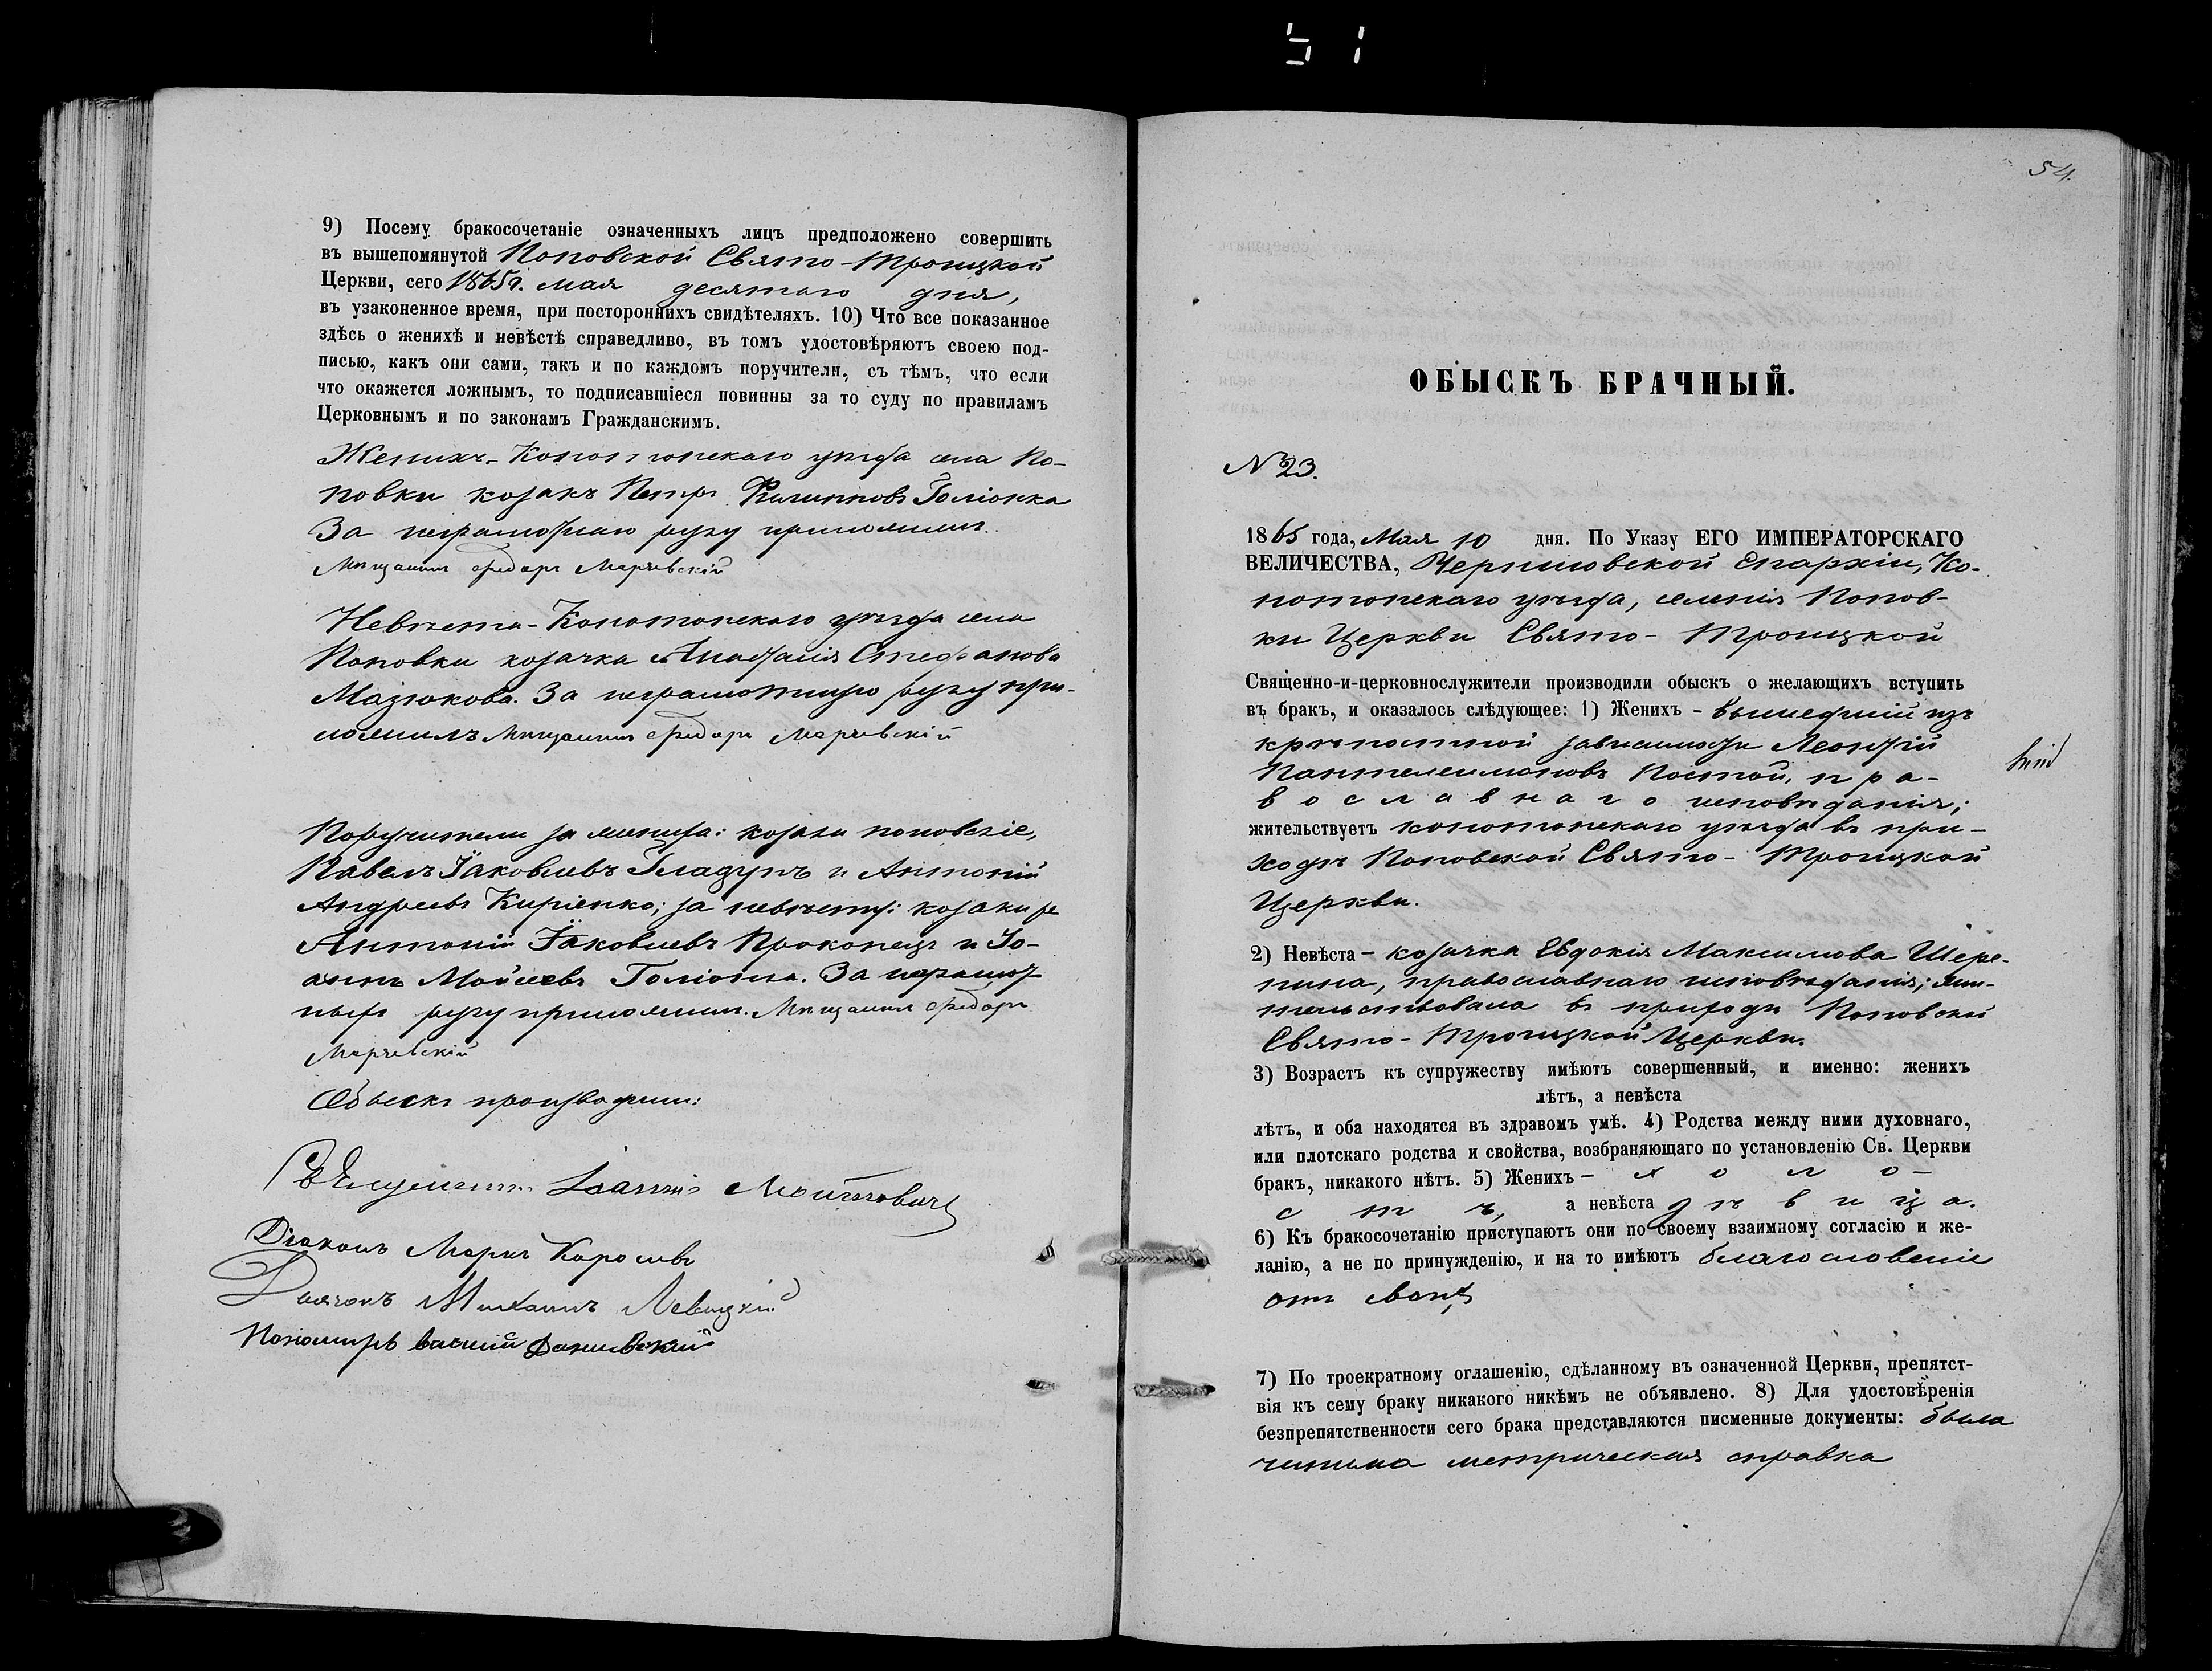 51
9) Посему бракосочетаніе означенныхъ лицъ предположено совершить
въ вышепомянутой Поповской Свято-Троицкой
Церкви, сего 1865 г. мая десятаго дня,
въ узаконенное время, при постороннихъ свидѣтеляхъ. 10) Что все показанное
здѣсь о женихѣ и невѣстѣ справедливо, въ томъ удостовѣряютъ своею под-
писью, какъ они сами, такъ и по каждомъ поручители, съ тѣмъ, что если
что окажется ложнымъ, то подписавшіеся повинны за то суду по правиламъ
Церковнымъ и по законамъ Гражданскимъ.
Женихъ - Конотопскаго уѣзда села По-
повки козакъ Петръ Филипповъ Голіонка
За неграмотнаго руку приложилъ
Мѣщанинъ Федоръ
Невѣста - Конотопскаго уѣзда села
Поповки козачка Анастасія Стефанова
Мазюкова. За неграмотную руку при-
ложилъ Мѣщанинъ Федоръ
Поручители за жениха: козаки поповскіе,
Павелъ Іаковлевъ Гладунъ и Антоній
Андреевъ Киріенко; за невѣсту: козаки же
Антоній Іаковлевъ Прокопецъ и Іо-
аннъ Мойсеевъ Голіонка. За неграмот-
ныхъ руку приложилъ. Мѣщанинъ Федоръ
Обыскъ производили:
Священникъ Іоаннъ
Діаконъ Маркъ Королевъ
Дьячокъ Михаилъ Левицкій
Пономарь Василій Данилевскій
54.
ОБЫСКЪ БРАЧНЫЙ.
№ 23.
1865 года, Мая 10 дня. По Указу ЕГО ИМПЕРАТОРСКАГО
ВЕЛИЧЕСТВА, Черниговской Епархіи, Ко-
нотопскаго уѣзда, селенія Попов-
ки Церкви Свято-Троицкой
Священно-и-церковнослужители производили обыскъ о желающихъ вступить
въ бракъ, и оказалось слѣдующее: 1) Женихъ - вышедшій изъ
крѣпостной зависимости Леонтій
Пантелеимоновъ Постой, пра-
вославнаго исповѣданія;
жительствуетъ конотопскаго уѣзда въ при-
ходѣ Поповской Свято-Троицкой
Церкви.
2) Невѣста - козачка Евдокія Максимова Шере-
пина, православнаго исповѣданія; жи-
тельствовала въ приходѣ Поповской
Свято-Троицкой Церкви.
3) Возрастъ къ супружеству имѣютъ совершенный, и именно: женихъ
лѣтъ, а невѣста
лѣтъ, и оба находятся въ здравомъ умѣ. 4) Родства между ними духовнаго,
или плотскаго родства и свойства, возбраняющаго по установленію Св. Церкви
бракъ, никакого нѣтъ. 5) Женихъ - холо-
стъ, а невѣста дѣвица.
6) Къ бракосочетанію приступаютъ они по своему взаимному согласію и же-
ланію, а не по принужденію, и на то имѣютъ благословеніе
отъ своихъ
7) По троекратному оглашенію, сдѣланному въ означенной Церкви, препятст-
вія къ сему браку никакого никѣмъ не объявлено. 8) Для удостовѣренія
безпрепятственности сего брака представляются писменные документы: была
чинима метрическая справка